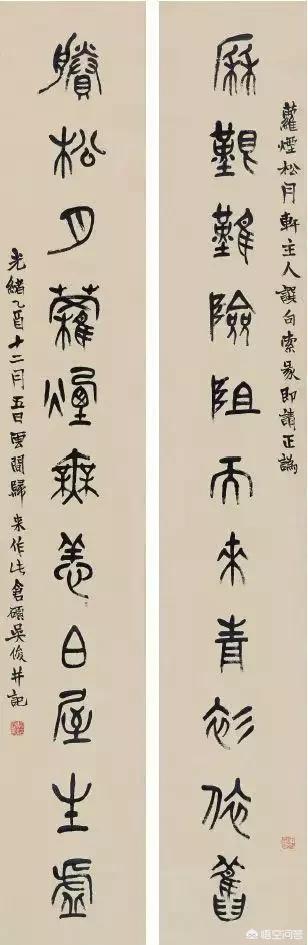 蘿煙松月軒主人譔句索篆即請正譌
厤艱難險阻而來青衫依舊
賸松月蘿煙無恙白屋生虛
光緒乙酉十二月五日雲間歸來作此倉碩吳俊并記
悟空问答